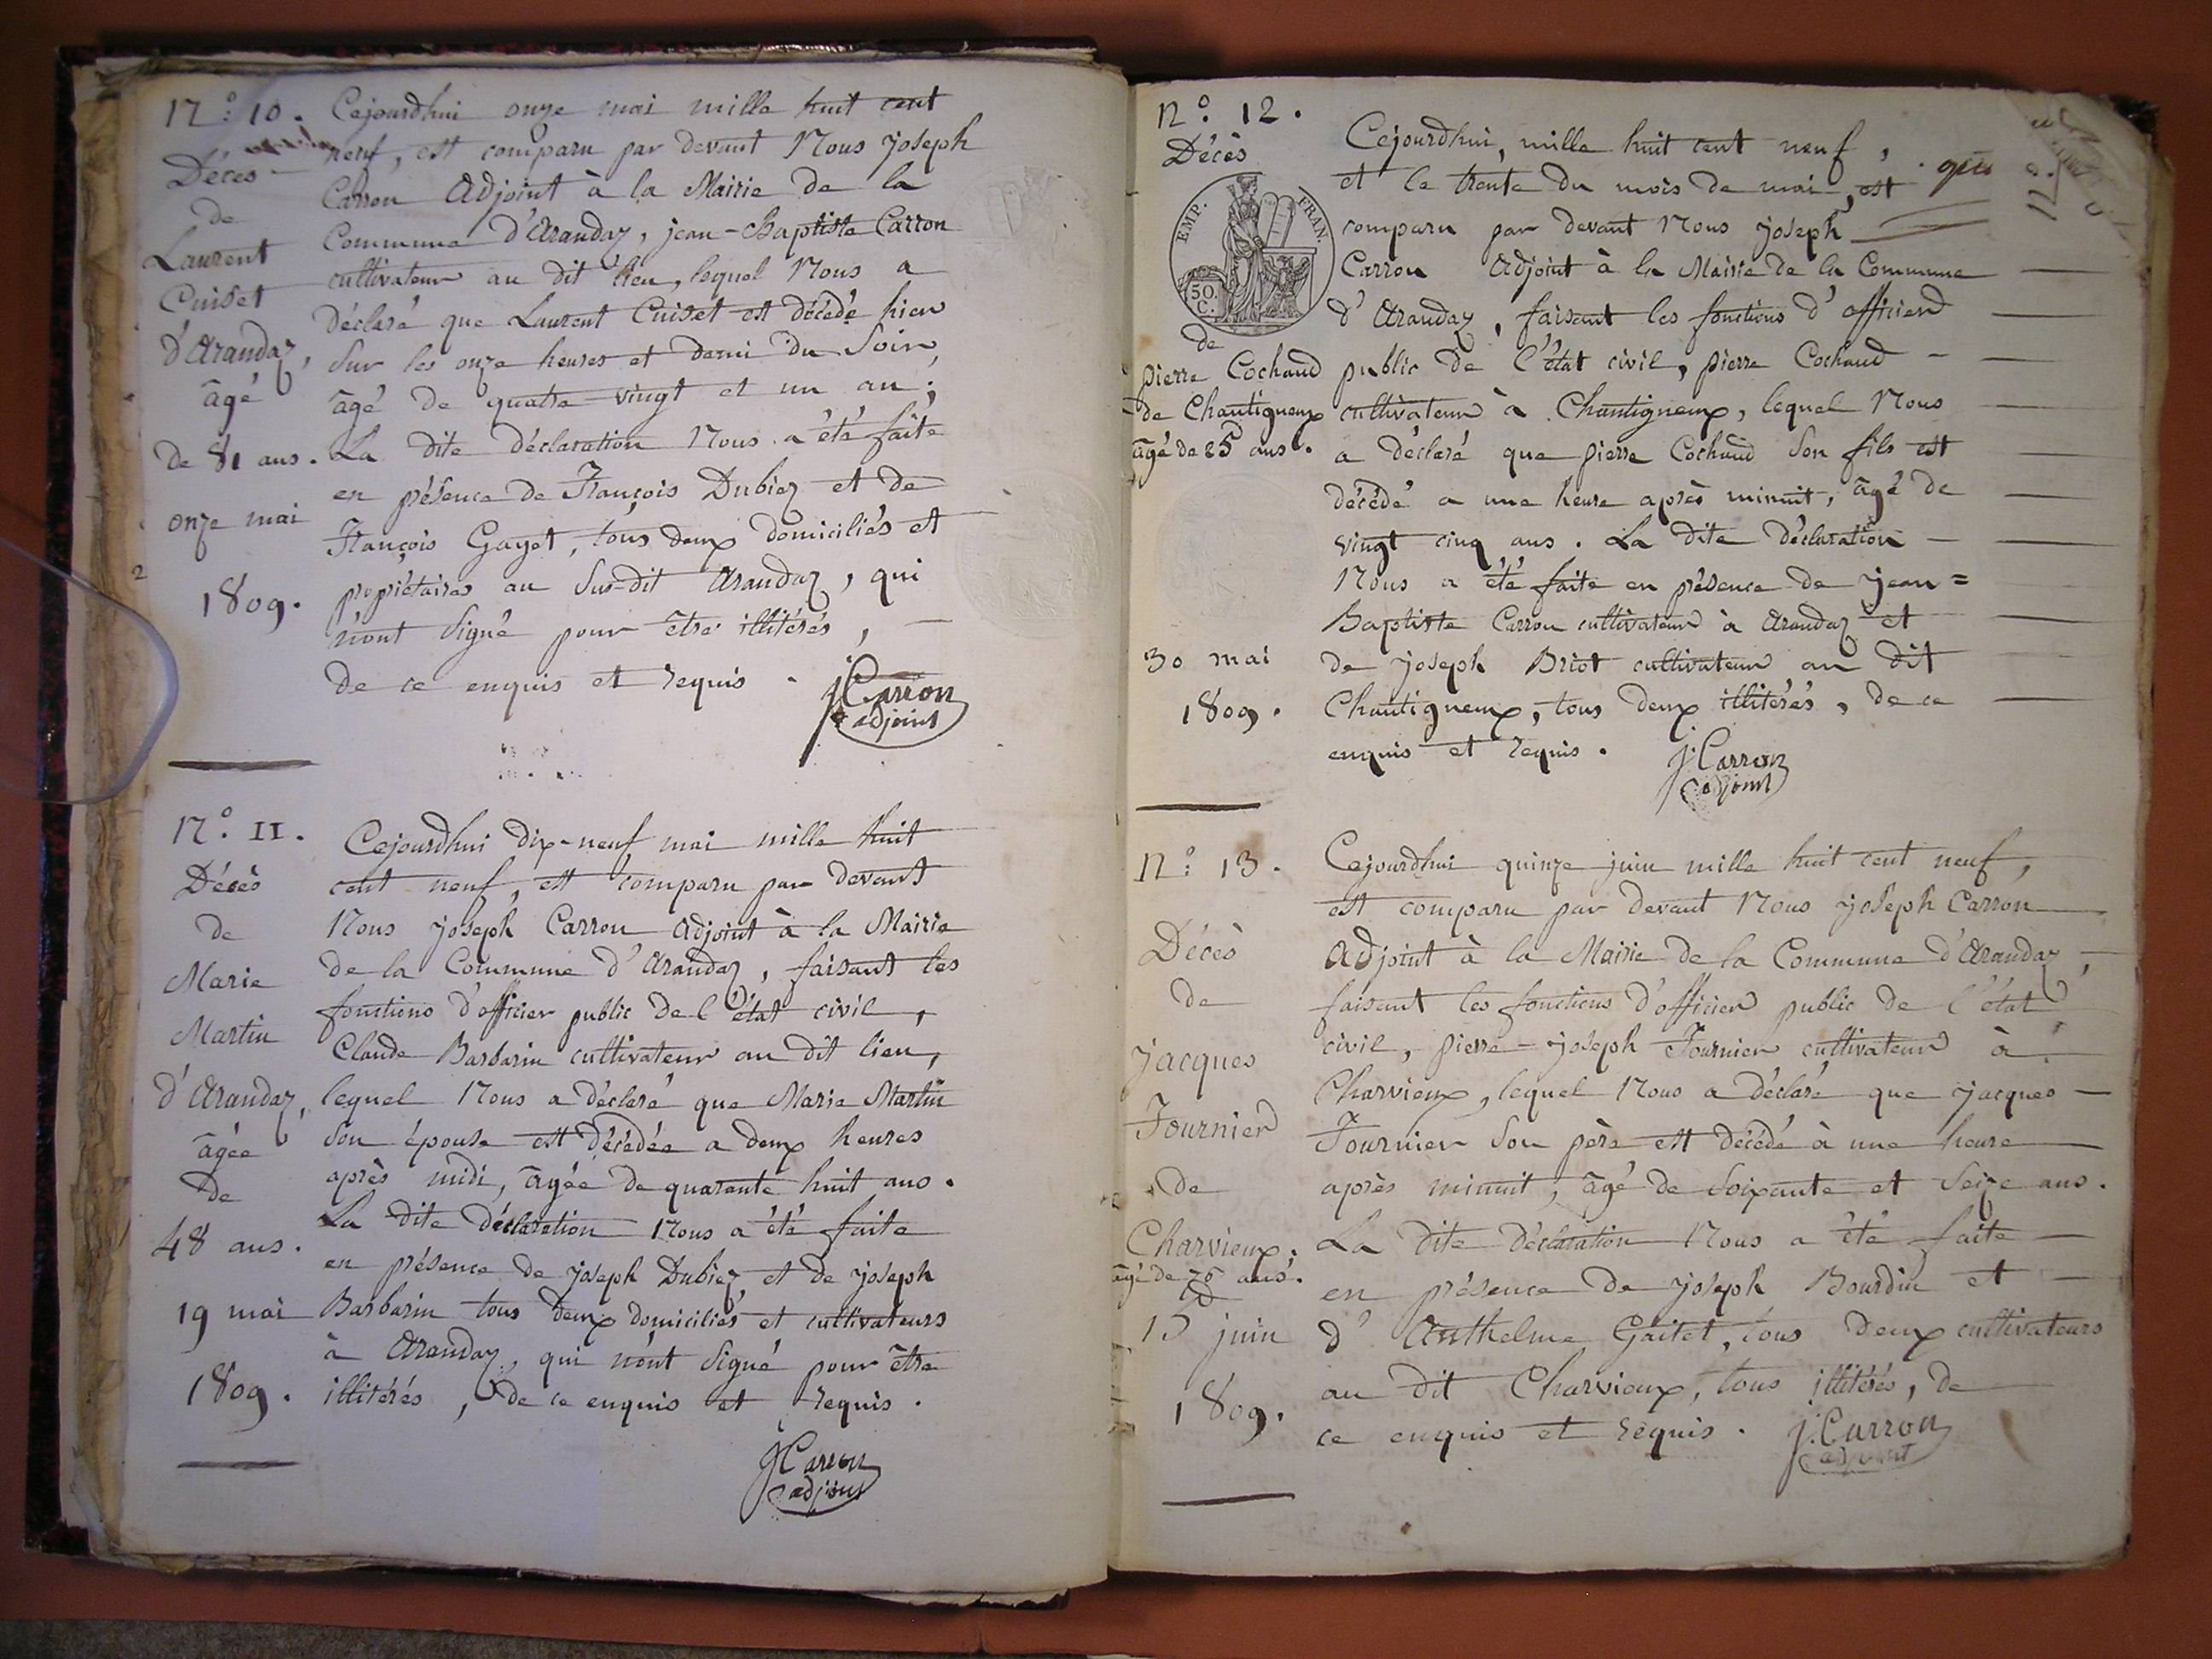 N.º 10.
Décès
de
Laurent
Cuiset
d'Arandaz,
âgé
de 81 ans.
onze mai
1809.
Cejourdhui onze mai mille huit cent
neuf, est comparu par devant Nous joseph
Carron Adjoint à la Mairie de la
Commune d'Arandaz, jean-Baptiste Carron
cultivateur au dit lieu, lequel Nous a
déclaré que Laurent Cuiset est décédé hier
sur les onze heures et demi du Soir,
âgé de quatre-vingt et un an;
La dite déclaration Nous a été faite
en présence de François Dubiez et de
François Gayet, tous deux domiciliés et
propriétaires au Sus-dit Arandaz, qui
n'ont signé pour être illitérés,
de ce enquis et requis.
J Carron
adjoint
N.º 11.
Décès
de
Marie
Martin
d'Arandaz,
âgée
de
48 ans.
19 mai
1809.
Cejourdhui dix-neuf mai mille huit
cent neuf, est comparu par devant
Nous joseph Carron Adjoint à la Mairie
de la Commune d'Arandaz, faisant les
fonctions d'officier public de l'état civil,
Claude Barbarin cultivateur au dit lieu,
lequel Nous a déclaré que Marie Martin
son épouse est décédée a deux heures
après midi, âgée de quarante huit ans.
La dite déclaration Nous a été faite
en présence de joseph Dubiez et de joseph
Barbarin tous deux domiciliés et cultivateurs
à Arandaz, qui n'ont signé pour être
illitérés, de ce enquis et requis.
J Carron
adjoint
N.º 12.
Décès
EMP. FRAN.
50.
C.
de
pierre Cochaud
de Chantigneux
âgé de 25 ans.
30 mai
1809.
Cejourdhui, mille huit cent neuf,
et le trente du mois de mai, est
comparu par devant Nous joseph
Carron Adjoint à la Mairie de la Commune
d'Arandaz, faisant les fonctions d'officier
public de l'état civil, pierre Cochaud
cultivateur à Chantigneux, lequel Nous
a déclaré que pierre Cochaud son fils est
décédé a une heure après minuit, âgé de
vingt cinq ans. La dite déclaration
Nous a été faite en présence de jean=
Baptiste Carron cultivateur à Arandaz et
de joseph Briot cultivateur au dit
Chantigneux, tous deux illitérés, de ce
enquis et requis.
J. Carron
adjoint
N.º 13.
Décès
de
jacques
Fournier
de
Charvieux.
âgé de 76 ans.
15 juin
1809.
Cejourdhui quinze juin mille huit cent neuf,
est comparu par devant Nous joseph Carron
Adjoint à la Mairie de la Commune d'Arandaz,
faisant les fonctions d'officier public de l'état
civil, pierre-joseph Fournier cultivateur à
Charvieux, lequel Nous a déclaré que jacques
Fournier son père est décédé à une heure
après minuit, âgé de soixante et seize ans.
La dite déclaration Nous a été faite
en présence de joseph Bourdin et
d'Anthelme Gaitet, tous deux cultivateurs
au dit Charvieux, tous illitérés, de
ce enquis et requis.
J. Carron
adjoint